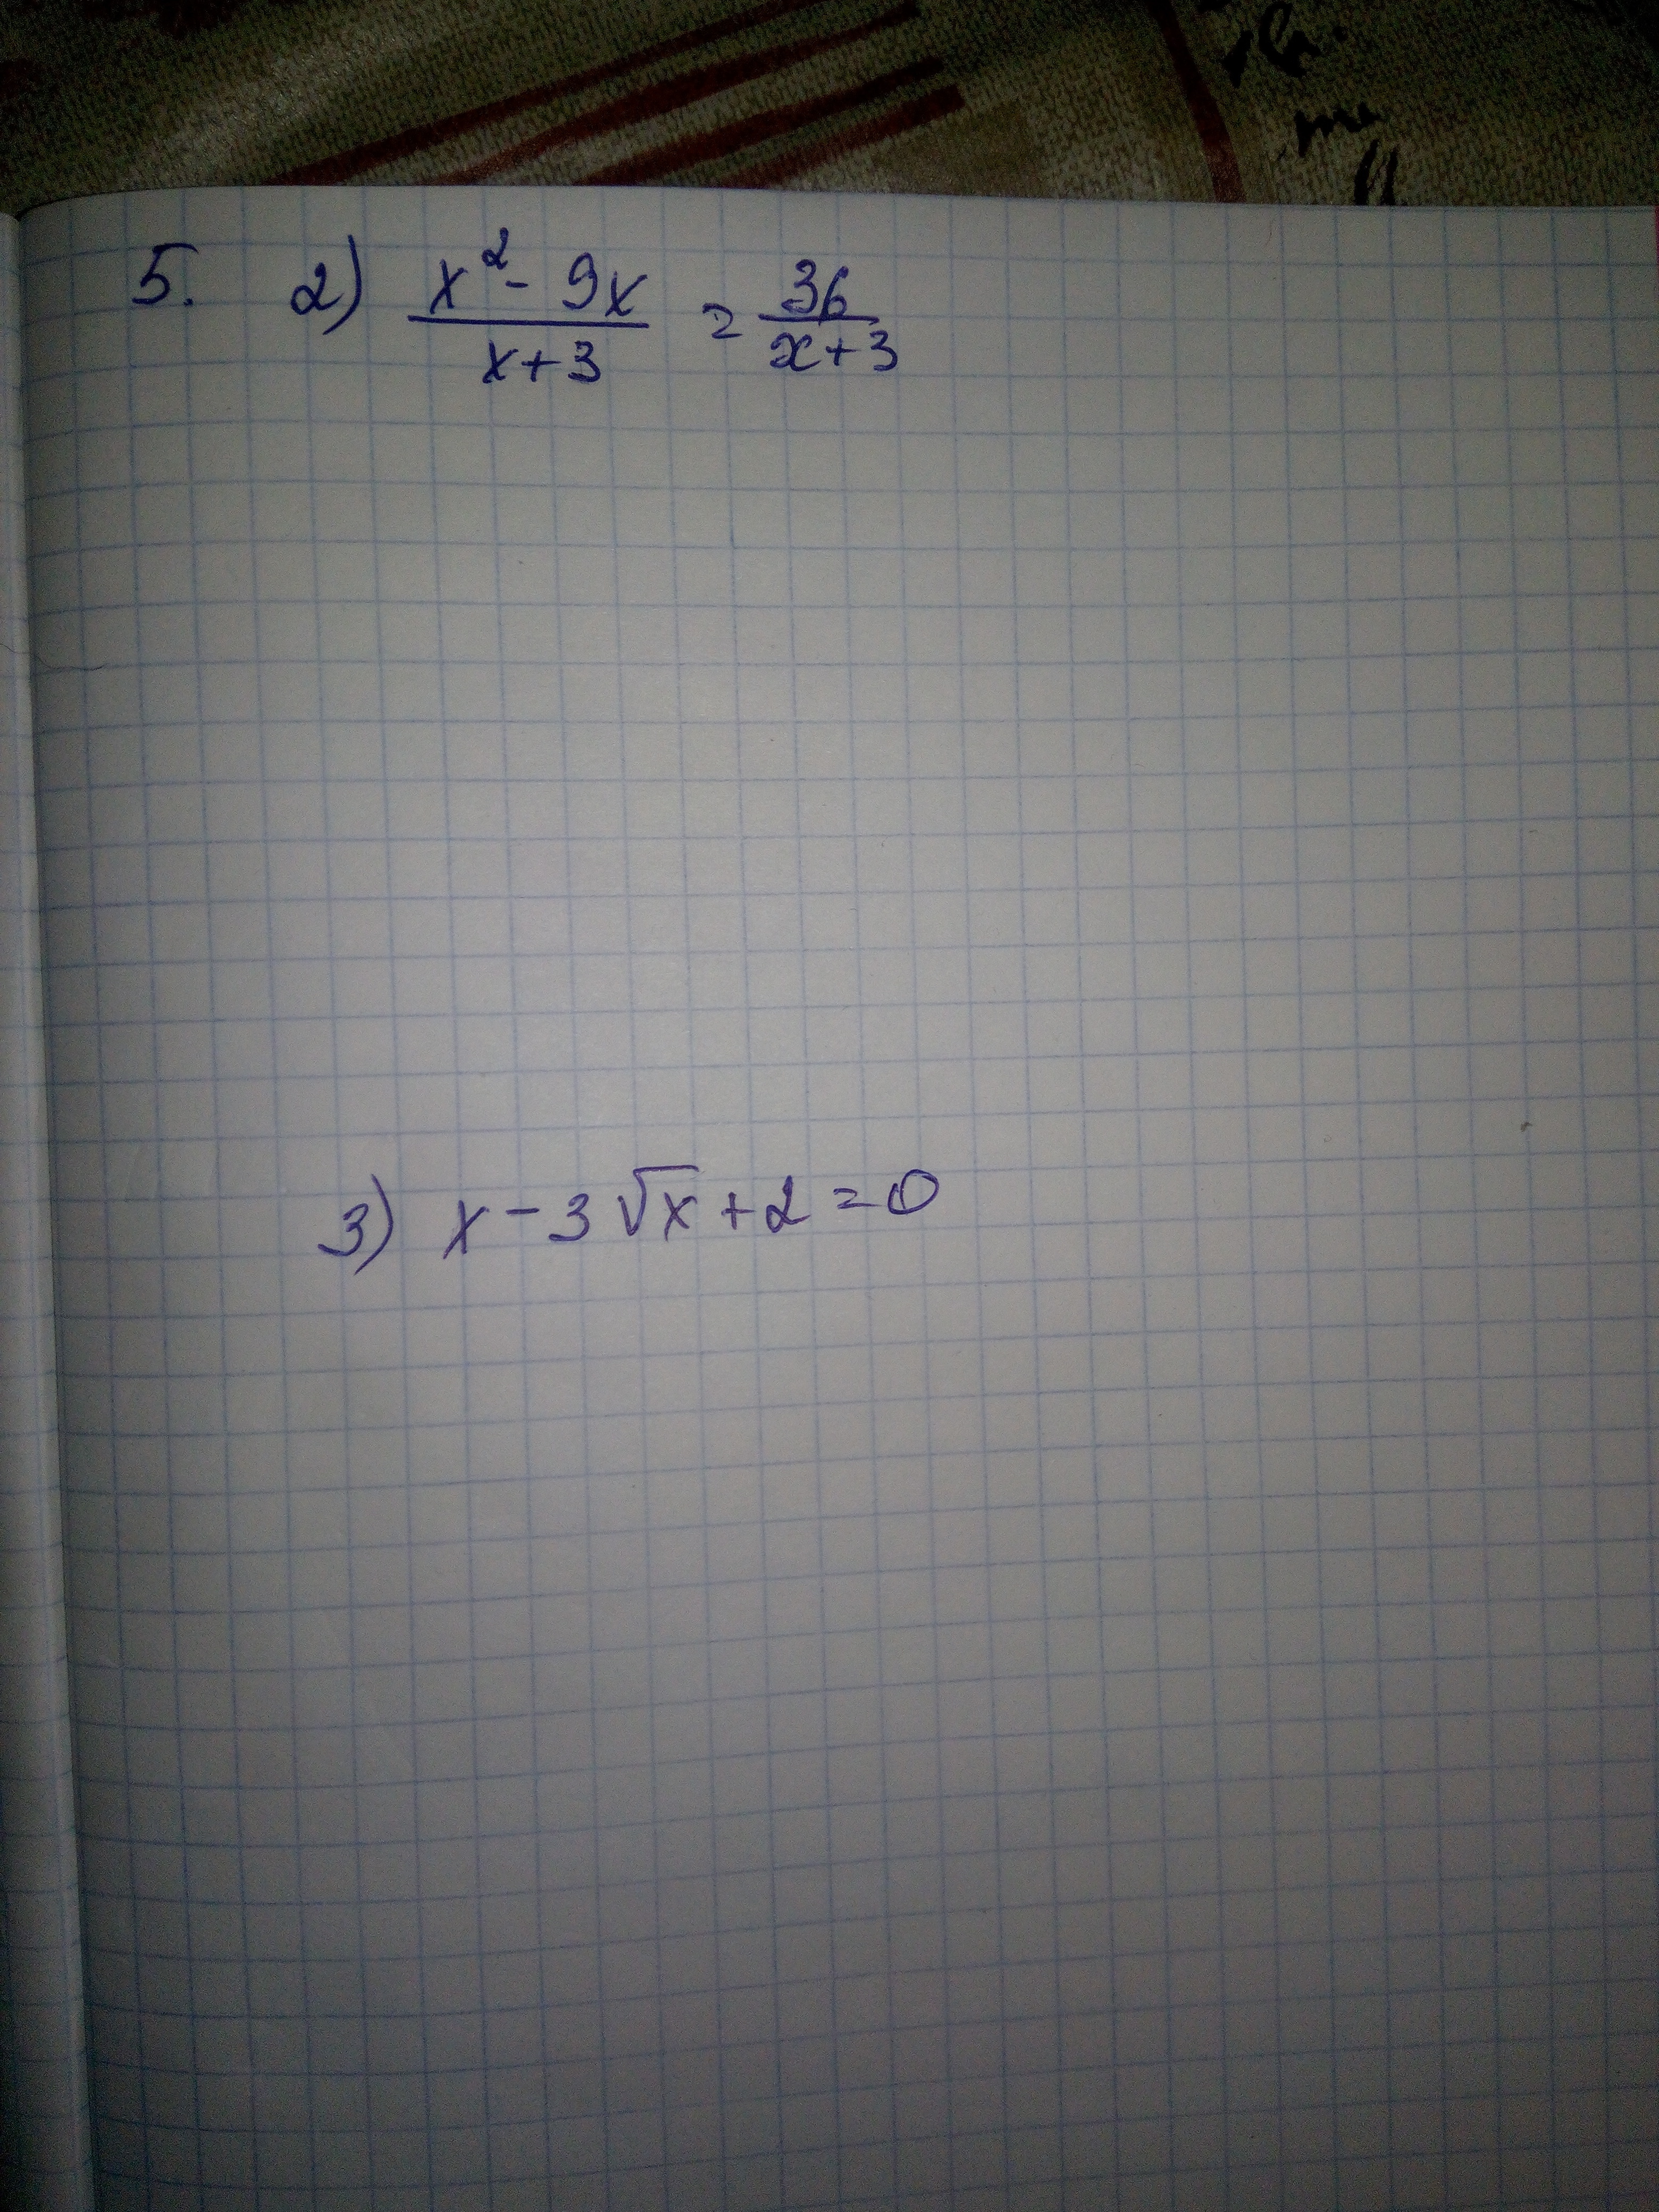 5. 2) (x² - 9x)/(x+3) = 36/(x+3)
3) x - 3√x + 2 = 0